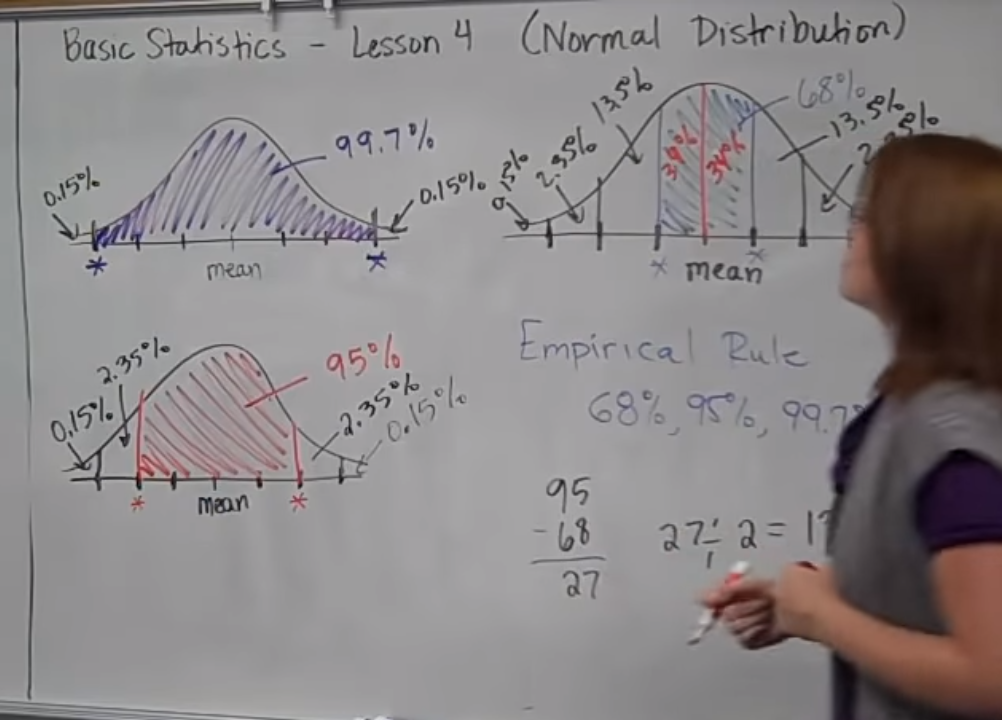 Basic Statistics - Lesson 4 (Normal Distribution)
0.15%
99.7%
0.15%
*
mean
*
0.15%
2.35%
95%
2.35%
0.15%
*
mean
*
2.35%
13.5%
68%
13.5%
34%
34%
*
mean
*
Empirical Rule
68%, 95%, 99.7
95
-68
27
27 ÷ 2 = 1